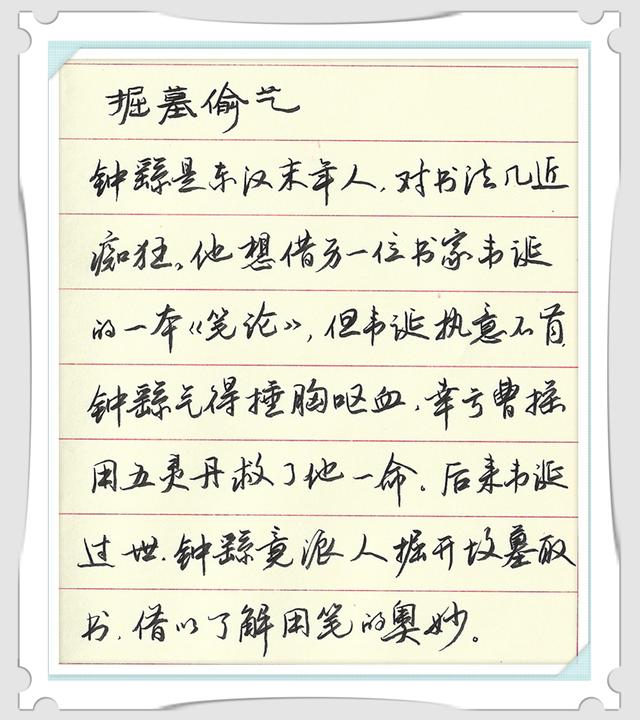 掘墓偷艺
钟繇是东汉末年人,对书法几近
痴狂。他想借另一位书家韦诞
的一本《笔论》,但韦诞执意不肯.
钟繇气得捶胸呕血,幸亏曹操
用五灵丹救了他一命。后来韦诞
过世.钟繇竟派人掘开坟墓取
书,借以了解用笔的奥妙。